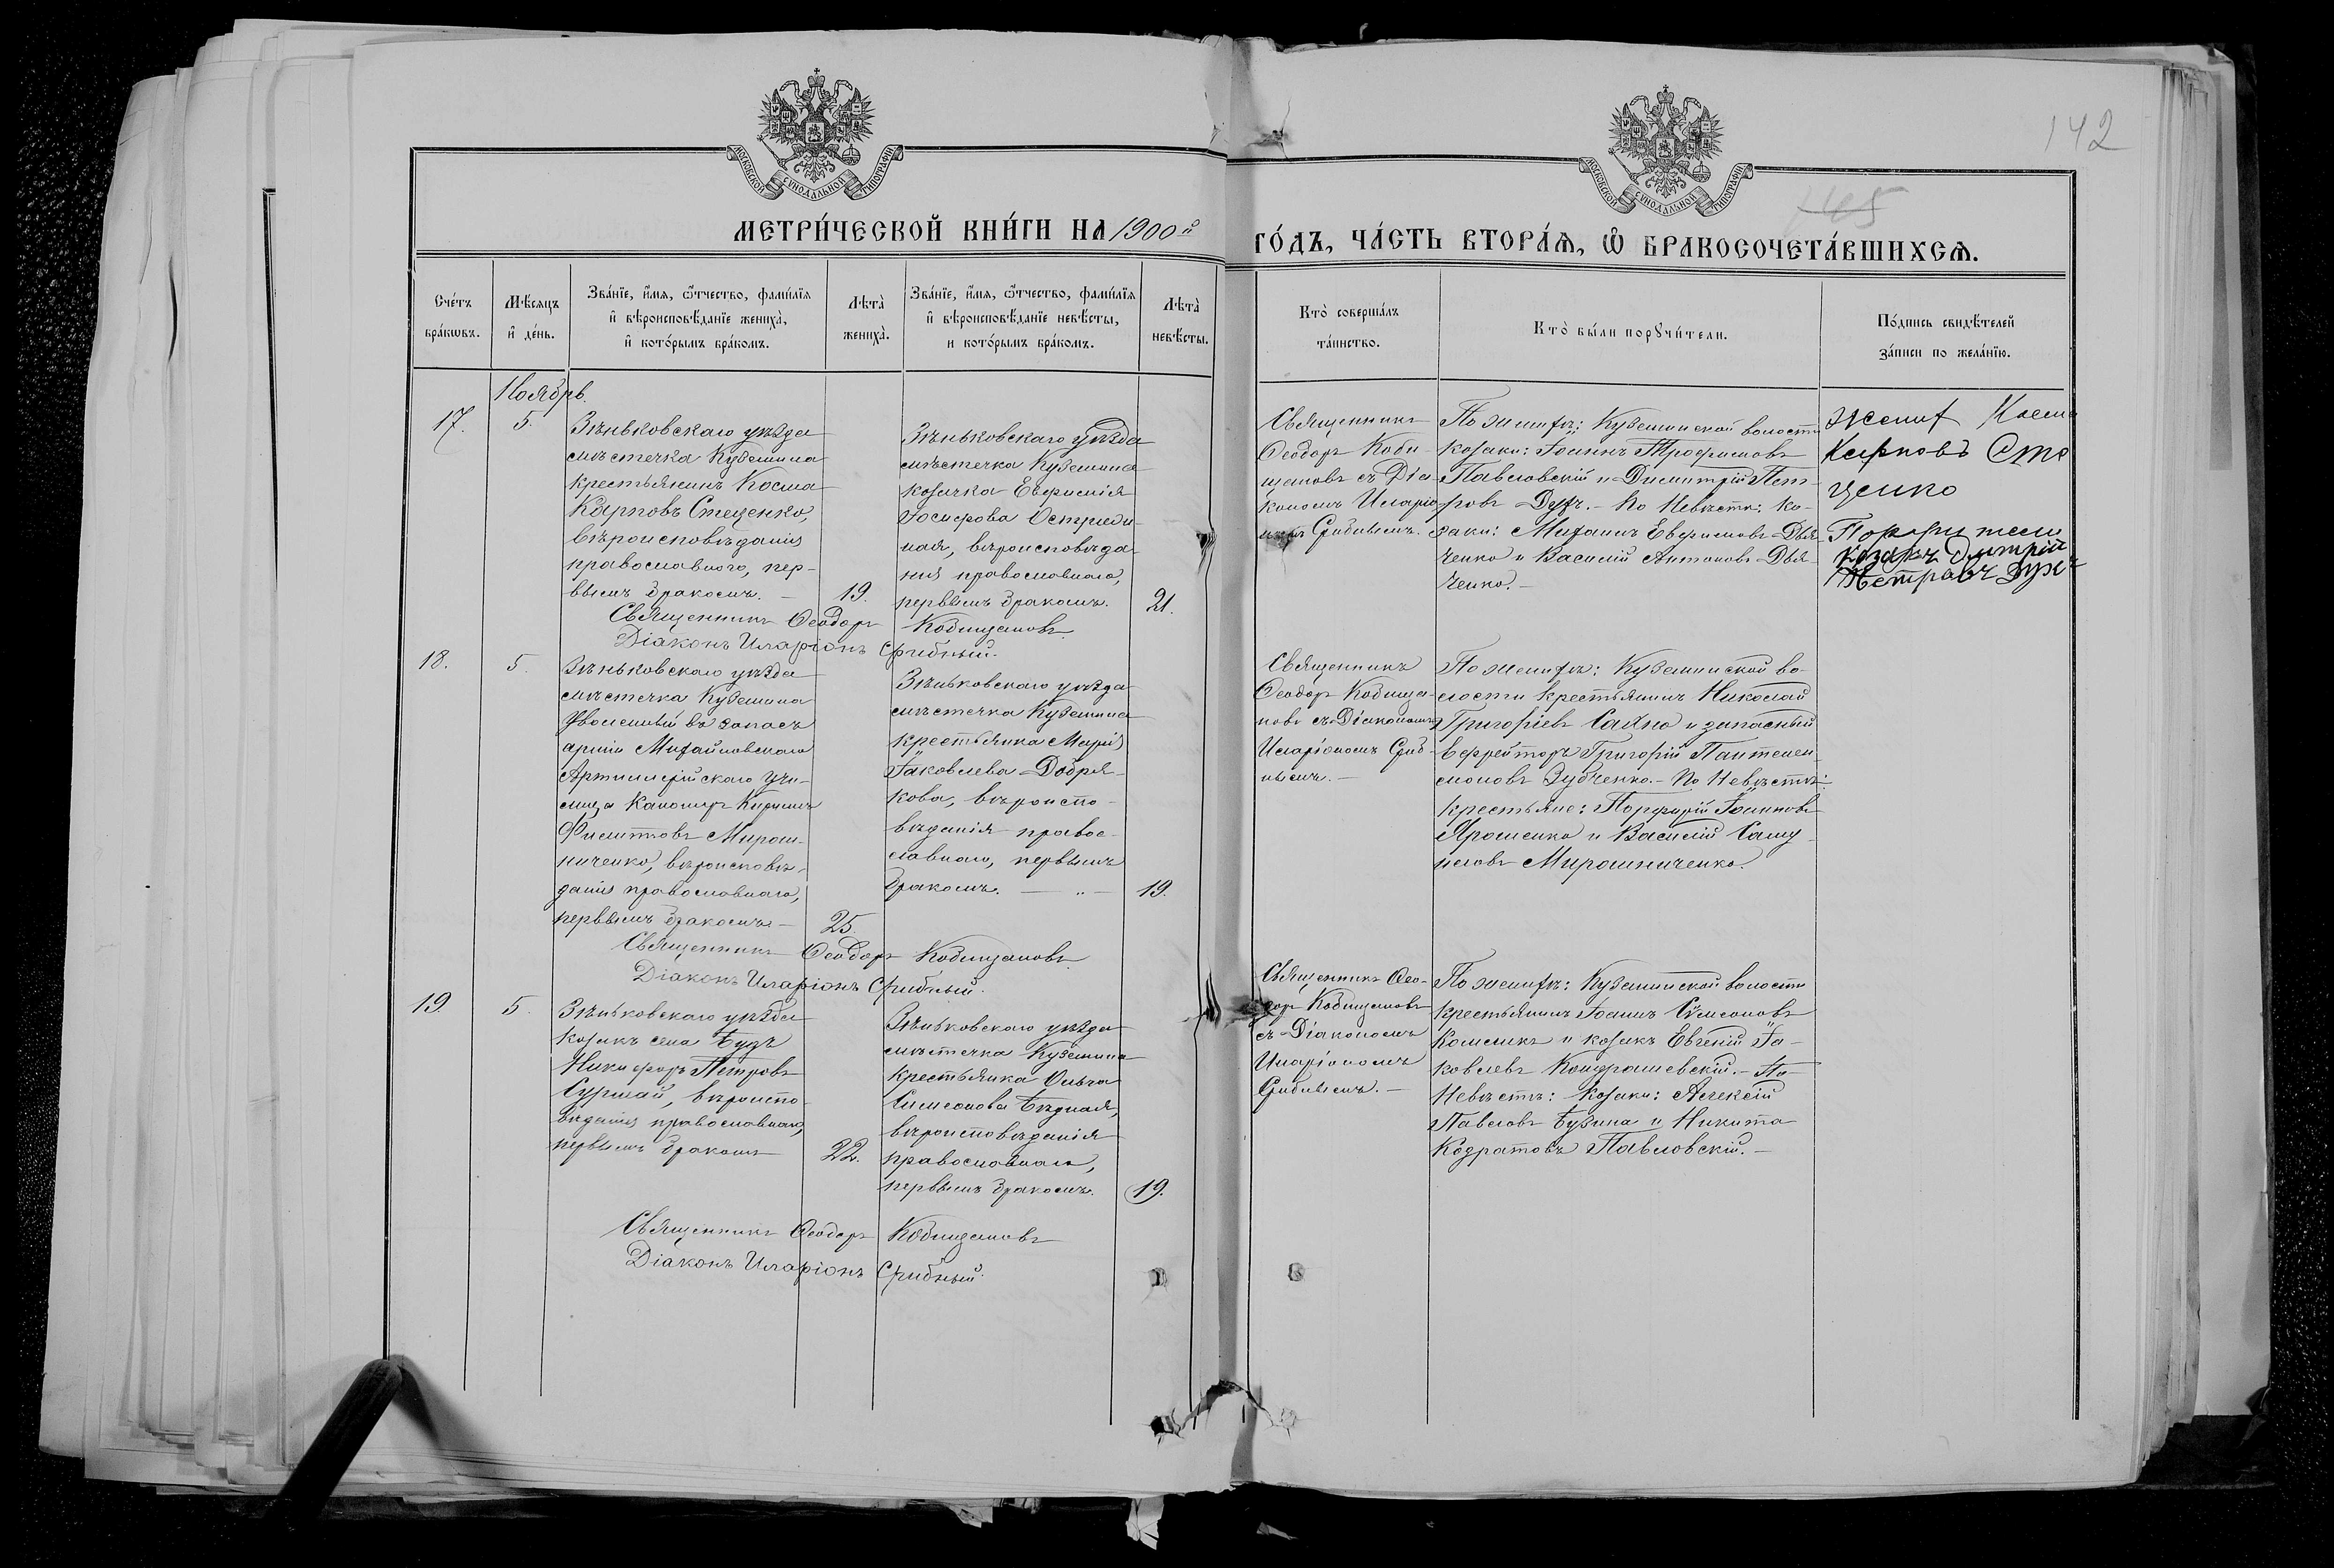 142
145
МОСКОВСКОЙ СѴНОДАЛЬНОЙ ТИПОГРАФІИ
МОСКОВСКОЙ СѴНОДАЛЬНОЙ ТИПОГРАФІИ
МЕТРИ́ЧЕСКОЙ КНИ́ГИ НА 1900й
ГО́ДЪ, ЧА́СТЬ ВТОРА́Ѧ, Ѽ БРАКОСОЧЕТА́ВШИХСѦ.
Сче́тъ
бра́кωвъ.
Мѣ́сяцъ
и҆ де́нь.
Зва́нїе, и҆́мя, ѻ҆́тчество, фами́лїя
и҆ вѣроисповѣ́данїе жениха̀,
и҆ кото́рымъ бра́комъ.
Лѣта̀
жениха̀.
Зва́нїе, и҆́мя, ѻ҆́тчество, фами́лїя
и҆ вѣроисповѣ́данїе невѣ́сты,
и кото́рымъ бра́комъ.
Лѣта̀
невѣ́сты.
Кто̀ соверша́лъ
та́инство.
Кто̀ бы́ли порꙋчи́тели.
По́дпись свидѣ́телей
за́писи по жела́нїю.
Ноябрь.
17.
5.
Зѣньковскаго уѣзда
мѣстечка Куземина
крестьянинъ Косма
Карповъ Стеценко,
вѣроисповѣданія
православнаго, пер-
вымъ бракомъ. —
19.
Зѣньковскаго уѣзда
мѣстечка Куземина
козачка Евфимія
Іосифова Остриди-
ная, вѣроисповѣда-
нія православнаго,
первымъ бракомъ.
21.
Священникъ Ѳеодоръ Кобищановъ
Діаконъ Иларіонъ Срибный.
Священникъ
Ѳеодоръ Коби-
щановъ съ Діа-
кономъ Иларіо-
номъ Срибнымъ.
По женихѣ: Куземинской волости
козаки: Іоаннъ Трофимовъ
Павловскій и Димитрій Пет-
ровъ Духъ. — По Невѣстѣ: ко-
заки: Михаилъ Евфимовъ Дья-
ченко и Василій Антоновъ Дья-
ченко. —
Жених Косма
Карповъ Сте
ценко
Поручители
козакъ Дмитрій
Петровъ Духъ
18.
5.
Зѣньковскаго уѣзда
мѣстечка Куземина
уволенный въ запасъ
арміи Михайловскаго
Артиллерійскаго Учи-
лища Канониръ Кириллъ
Филипповъ Мирош-
ниченко, вѣроисповѣ-
данія православнаго,
первымъ бракомъ —
25.
Зѣньковскаго уѣзда
мѣстечка Куземина
крестьянка Марія
Іаковлева Добря-
кова, вѣроиспо-
вѣданія правос-
лавнаго, первымъ
бракомъ. — „ —
19.
Священникъ Ѳеодоръ Кобищановъ
Діаконъ Иларіонъ Срибный.
Священникъ
Ѳеодоръ Кобища-
новъ съ Діакономъ
Иларіономъ Сриб-
нымъ. —
По женихѣ: Куземинской во-
лости крестьянинъ Николай
Григоріевъ Сахно и запасный
Ефрейторъ Григорій Пантелеи-
моновъ Зубченко. — По Невѣстѣ:
крестьяне: Порфирій Іоанновъ
Ярошенко и Василій Саму-
иловъ Мирошниченко.
19
5.
Зѣньковскаго уѣзда
козакъ села Будъ
Никифоръ Петровъ
Сурмай, вѣроиспо-
вѣданія православнаго,
первымъ бракомъ —
22.
Зѣньковскаго уѣзда
мѣстечка Куземина
крестьянка Ольга
Симеонова Бѣдная,
вѣроисповѣданія
православнаго,
первымъ бракомъ.
19.
Священникъ Ѳеодоръ Кобищановъ
Діаконъ Иларіонъ Срибный.
Священникъ Ѳео-
доръ Кобищановъ
съ Діакономъ
Иларіономъ
Срибнымъ. —
По женихѣ: Куземинской волости
крестьянинъ Іоаннъ Симеоновъ
Комликъ и козакъ Евгеній Іа-
ковлевъ Кондрашевскій. — По
Невѣстѣ: Козаки: Алексій
Павловъ Бузина и Никита
Кодратовъ Павловскій. —